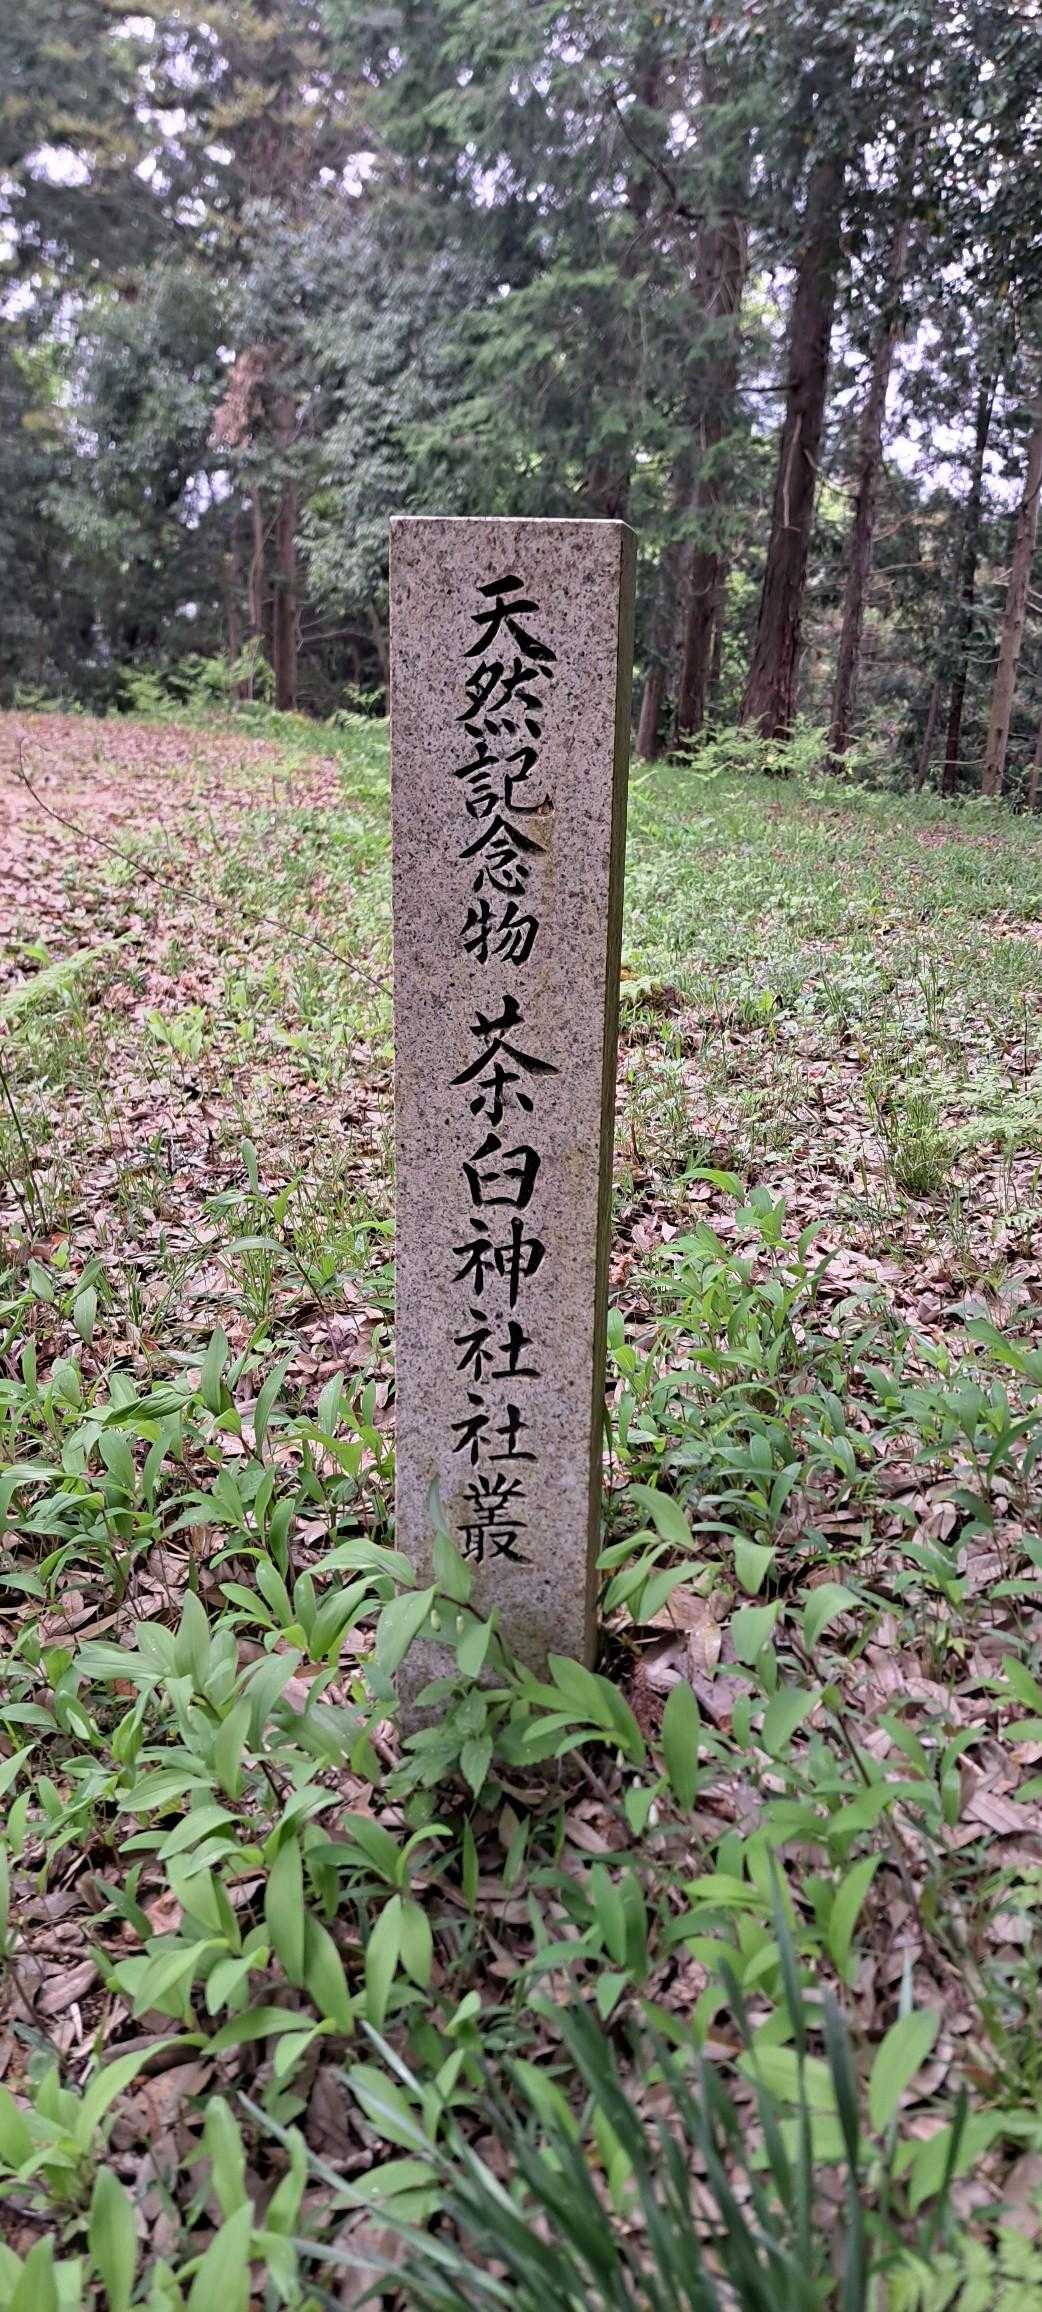 天然記念物 茶臼神社社叢